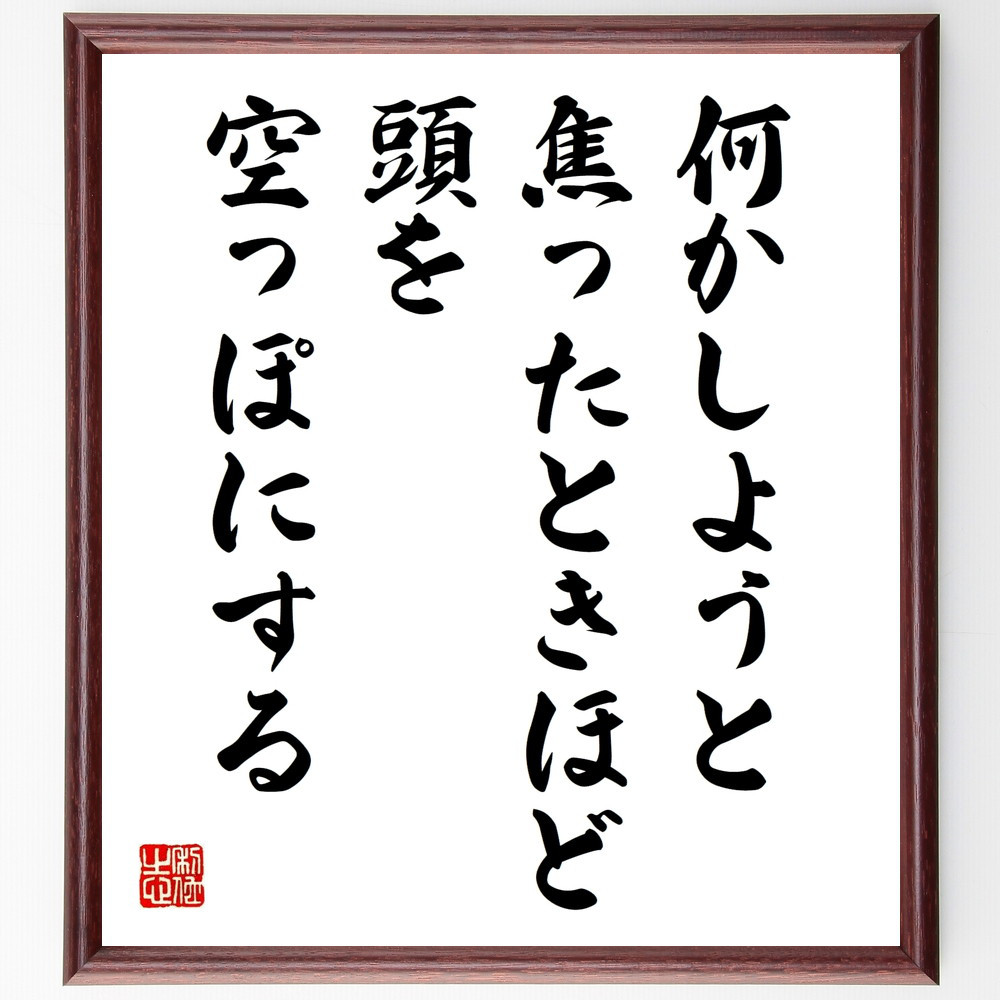 何かしようと
焦ったときほど
頭を
空っぽにする